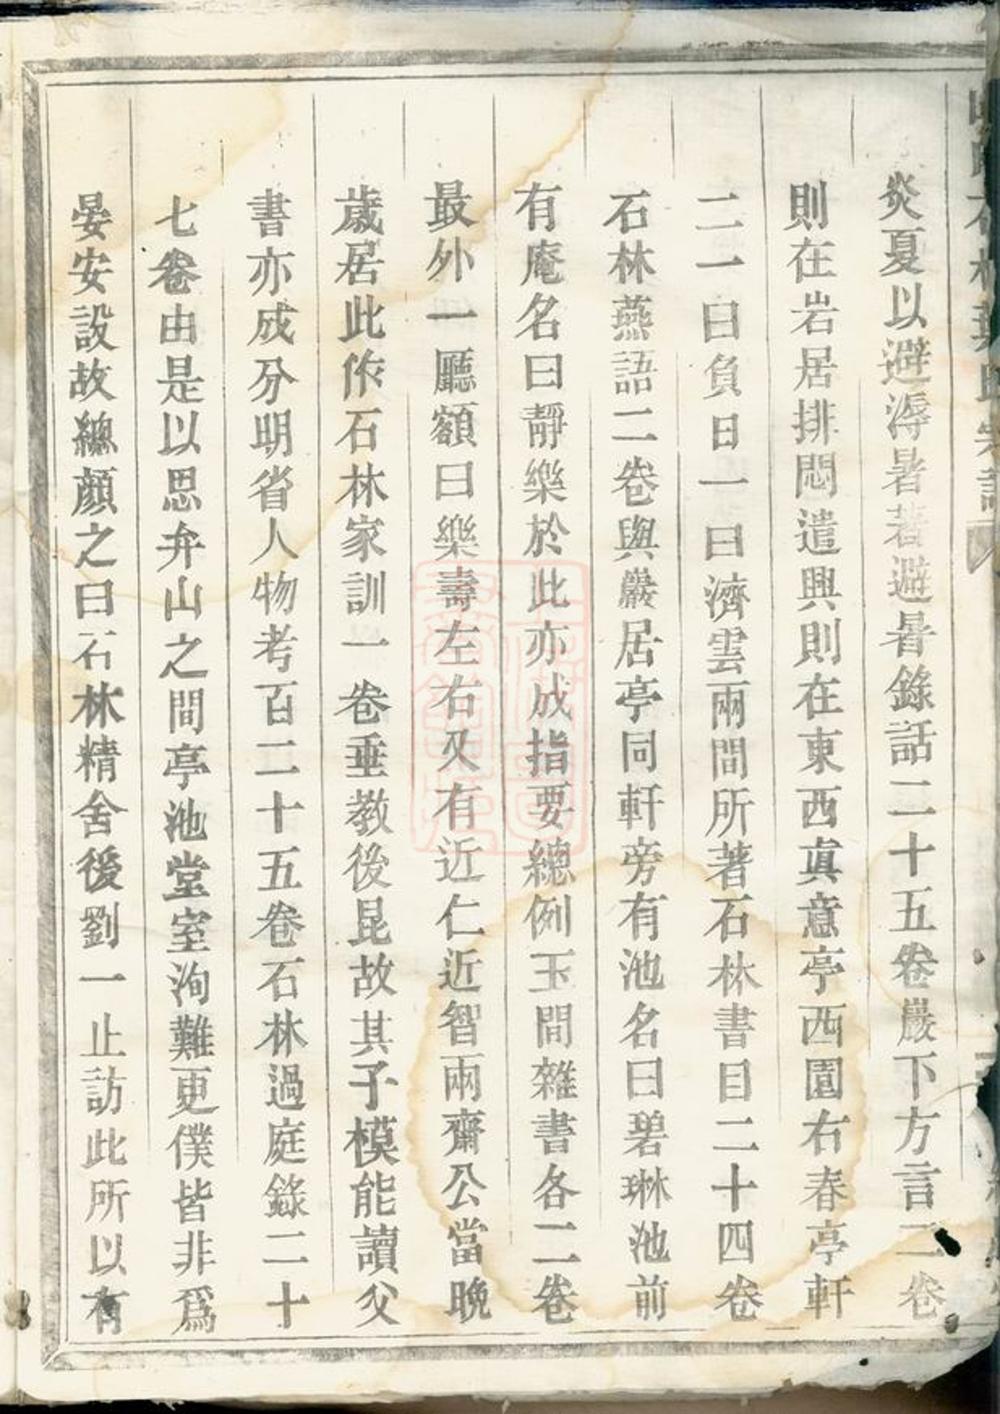 炎夏以避溽暑著避暑錄話二十五卷巖下方言二卷
則在岩居排悶遣興則在東西眞意亭西園右春亭軒
二一曰負日一曰濟雲兩間所著石林書目二十四卷
石林燕語二卷與巖居亭同軒旁有池名曰碧琳池前
有庵名曰靜樂於此亦成指要總例玉間雜書各二卷
最外一廳額曰樂壽左右又有近仁近智兩齋公當晩
歲居此作石林家訓一卷垂教後昆故其子模能讀父
書亦成分明省人物考百二十五卷石林過庭錄二十
七卷由是以思弁山之間亭池堂室洵難更僕皆非爲
晏安設故總顏之曰石林精舍後劉一止訪此所以有